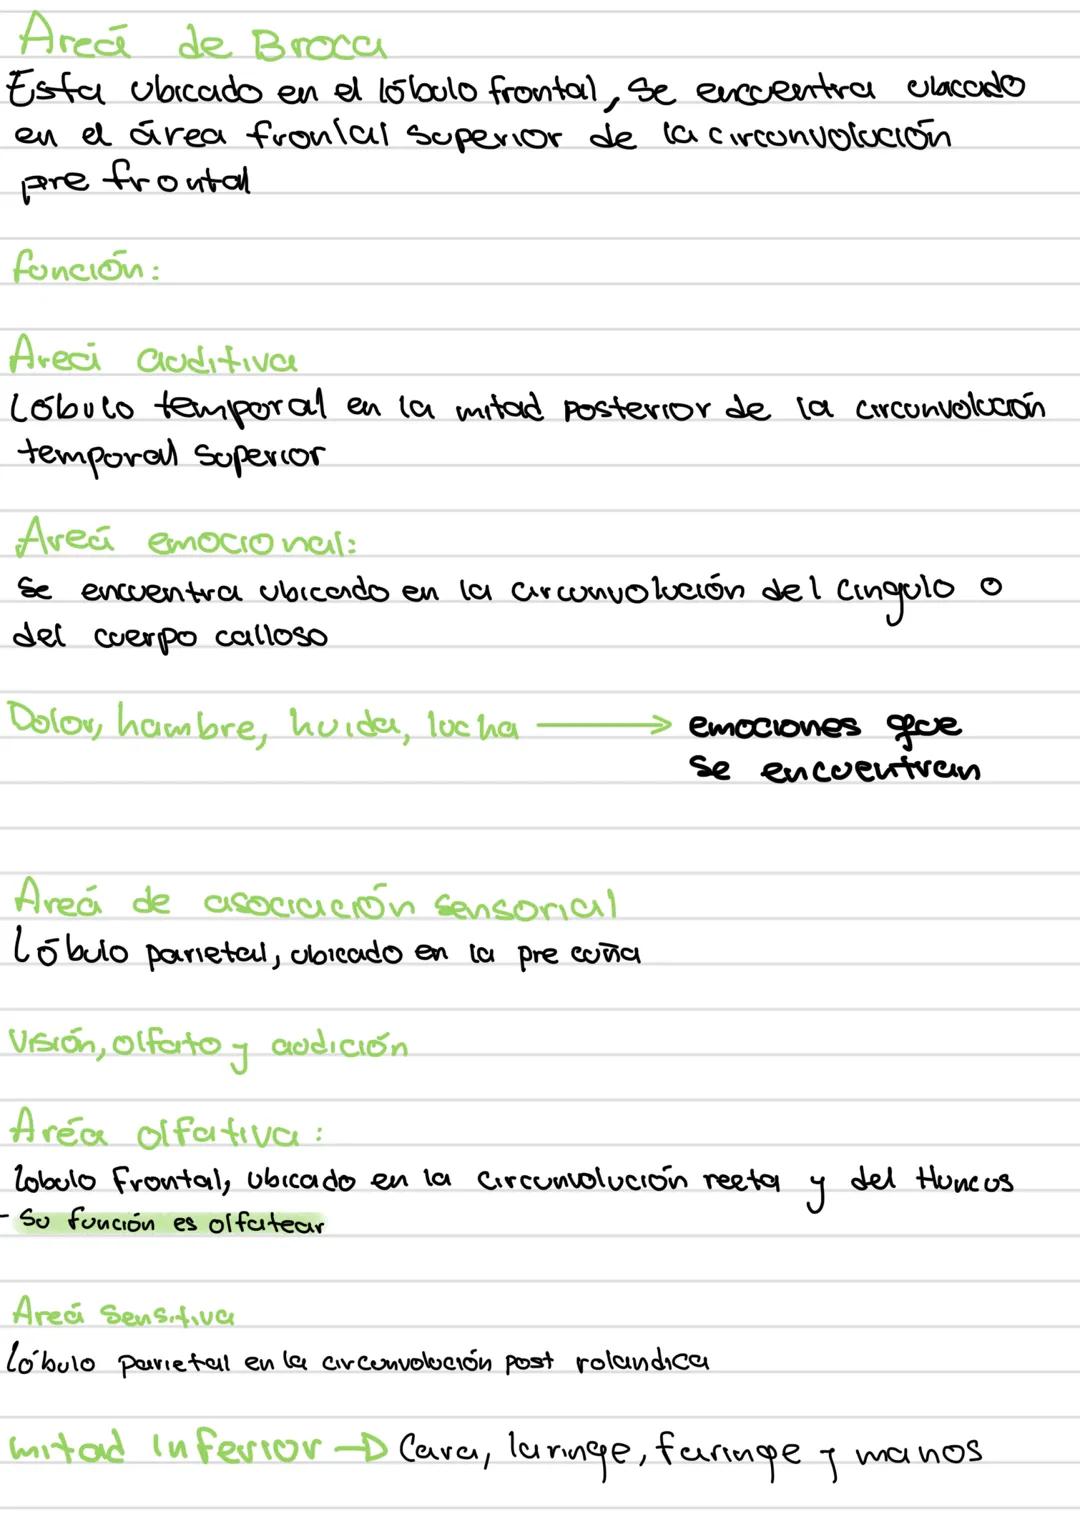 Areá de Broca
Esta ubicado en el lóbulo frontal, Se encuentra ubicado
en el área frontal superior de la circunvolución
pre frontal
función:
Areá auditiva
Lóbulo temporal en la mitad posterior de la circunvolución
temporal superior
Areá emocional:
Se encuentra ubicado en la circunvolución del cingulo o
del cuerpo calloso
Dolor, hambre, huida, lucha → emociones que
se encuentran
Areá de asociación sensorial
Lóbulo parietal, ubicado en la pre cuña
Visión, olfato y audición
Aréa olfativa:
Lobulo Frontal, ubicado en la circunvolución recta y del Huncus
- Su función es olfatear
Areá Sensitiva
Lóbulo parietal en la circunvolución post rolandica
mitad inferior → Cara, laringe, faringe y manos